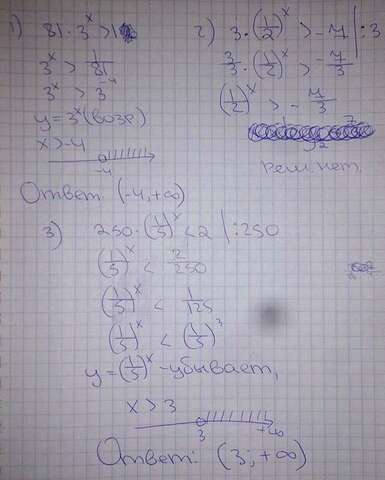 1) 81·3ˣ > 1
3ˣ > 1/81
3ˣ > 3⁻⁴
y = 3ˣ (возр)
x > -4
-4
Ответ: (-4, +∞)
2) 3·(1/2)ˣ > -7 | :3
3/3·(1/2)ˣ > -7/3
(1/2)ˣ > -7/3
реш. нет.
3) 250·(1/5)ˣ < 2 | :250
(1/5)ˣ < 2/250
(1/5)ˣ < 1/125
(1/5)ˣ < (1/5)³
y = (1/5)ˣ - убывает,
x > 3
3 +∞
Ответ: (3; +∞)